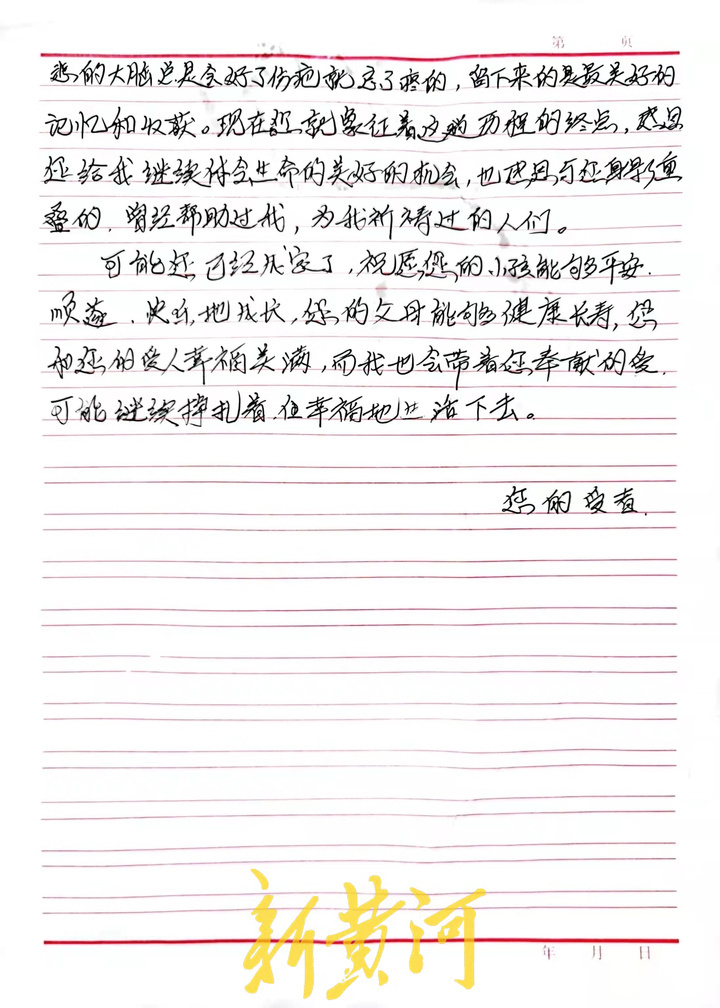 第 页
悲的大脑总是会好了伤疤就忘了疼的，留下来的是最美好的
记忆和收获。现在就象征着这趟历程的终点，感恩
您给我继续体会生命的美好的机会，也感恩与您身影重
叠的、曾经帮助过我，为我祈祷过的人们。
可能您已经成家了，祝愿您的小孩能够平安、
顺遂、快乐地成长，您的父母能够健康长寿，您
和您的爱人幸福美满，而我也会带着您奉献的爱，
可能继续挣扎着但幸福地生活下去。
您的受者.
新黄河
年 月 日